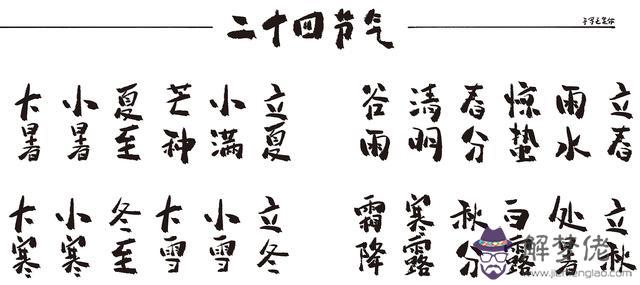 二十四节气
立春
雨水
惊蛰
春分
清明
谷雨
立夏
小满
芒种
夏至
小暑
大暑
立秋
处暑
白露
秋分
寒露
霜降
立冬
小雪
大雪
冬至
小寒
大寒
解梦佬
www.jiemenglao.com